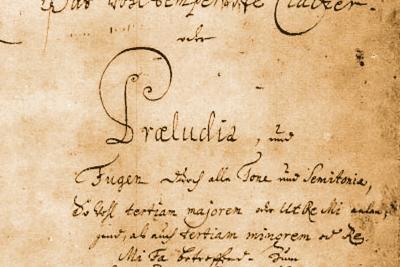 Das Wohltemperirte Clavier.
oder
Præludia, und
Fugen durch alle Tone und Semitonia,
So wohl tertiam majorem oder Ut Re Mi anlan-
gend, als auch tertiam minorem oder Re
Mi Fa betreffend. Zum